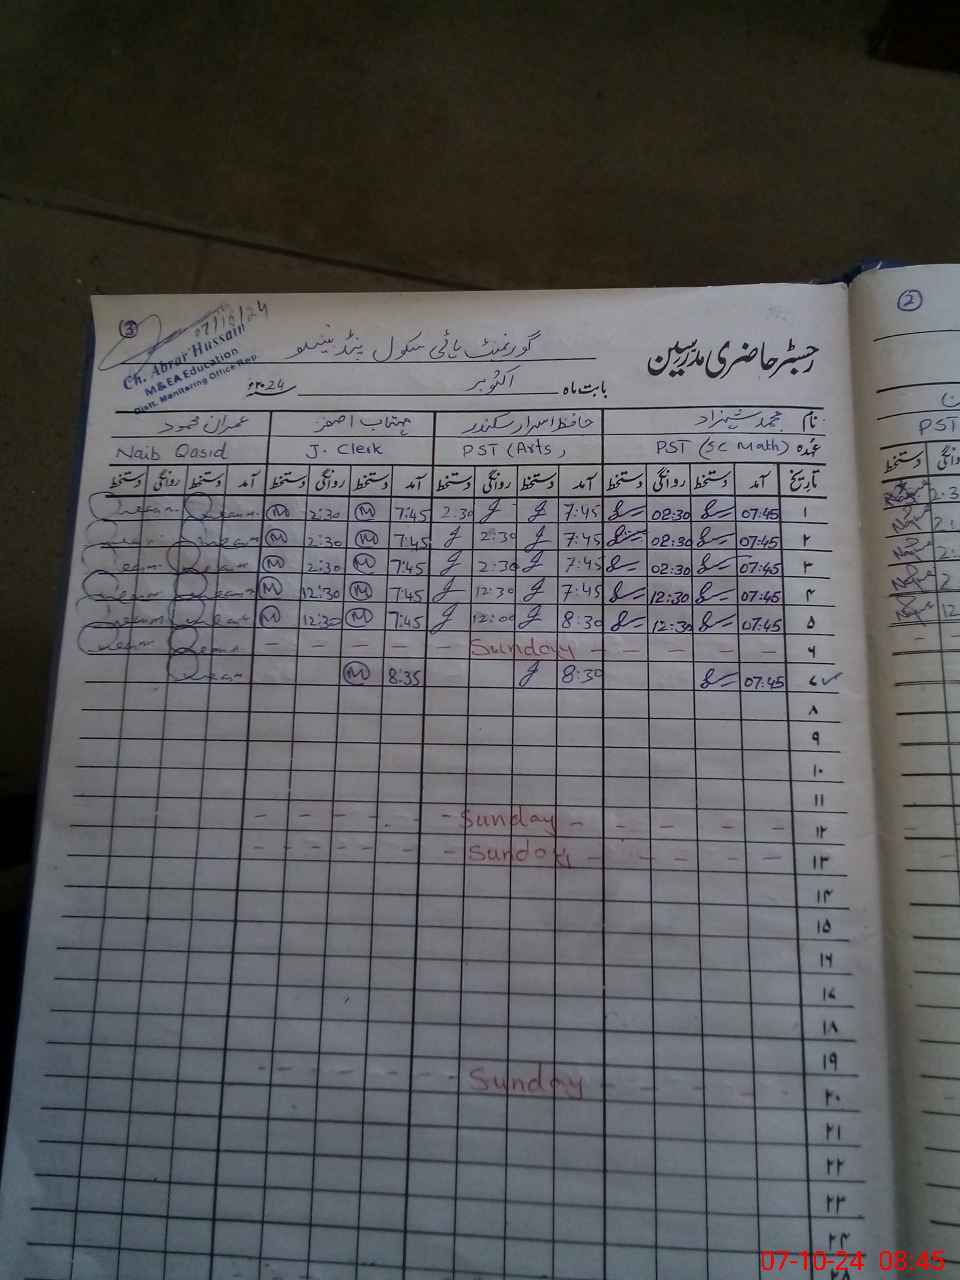 3
07/10/24
Ch. Abrar Hussain
M&EA Education
Distt. Monitoring Office Rwp
رجسٹر حاضری مدرسین
گورنمنٹ ہائی سکول پنڈ
بابت ماہ اکتوبر 2024ء
نام محمد شہزاد حافظ اسرار سکندر مہتاب اصغر عمران محمود
عہدہ PST (SC Math) PST (Arts) J. Clerk Naib Qasid
تاریخ آمد دستخط روانگی دستخط آمد دستخط روانگی دستخط آمد دستخط روانگی دستخط آمد دستخط روانگی دستخط
۱ 07:45 02:30 7:45 2:30 7:45 M 2:30 M
۲ 07:45 02:30 7:45 2:30 7:45 M 2:30 M
۳ 07:45 02:30 7:45 2:30 7:45 M 2:30 M
۴ 07:45 12:30 7:45 12:30 7:45 M 12:30 M
۵ 07:45 12:30 8:30 12:00 7:45 M 12:30 M
۶ Sunday
۷ 07:45 8:30 8:35 M
۸
۹
۱۰
۱۱
۱۲ Sunday
۱۳ Sunday
۱۴
۱۵
۱۶
۱۷
۱۸
۱۹
۲۰ Sunday
۲۱
۲۲
۲۳
۲۴
2
PST
دستخط
07-10-24 08:45